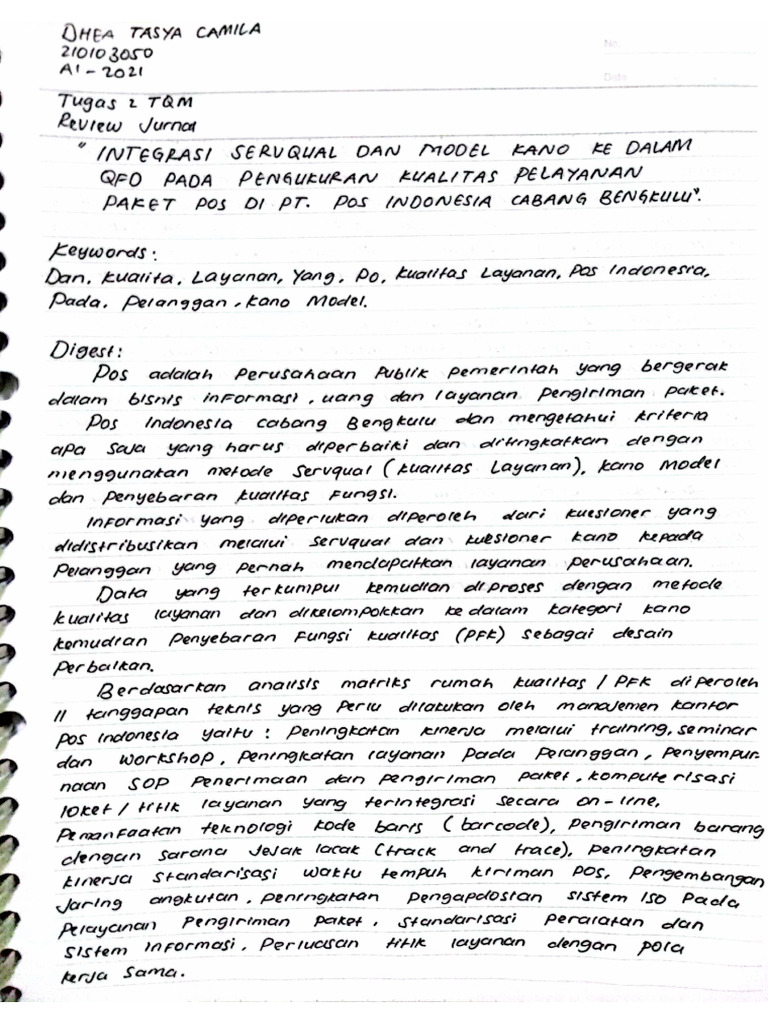 DHEA TASYA CAMILA
210103050
AI-2021
No.
Date
Tugas 2 TQM
Review Jurnal
"INTEGRASI SERVQUAL DAN MODEL KANO KE DALAM
QFD PADA PENGUKURAN KUALITAS PELAYANAN
PAKET POS DI PT. POS INDONESIA CABANG BENGKULU".
Keywords:
Dan, Kualita, Layanan, Yang, Po, Kualitas Layanan, Pos Indonesia,
Pada, Pelanggan, Kano Model.
Digest:
Pos adalah perusahaan publik pemerintah yang bergerak
dalam bisnis informasi, uang dan layanan pengiriman paket.
Pos Indonesia cabang Bengkulu dan mengetahui kriteria
apa saja yang harus diperbaiki dan ditingkatkan dengan
menggunakan metode servqual (kualitas Layanan), kano model
dan Penyebaran kualitas Fungsi.
Informasi yang diperlukan diperoleh dari kuesioner yang
didistribusikan melalui servqual dan kuesioner kano kepada
Pelanggan yang pernah mendapatkan layanan perusahaan.
Data yang terkumpul kemudian diproses dengan metode
kualitas layanan dan dikelompokkan ke dalam kategori kano
kemudian Penyebaran Fungsi kualitas (PFK) sebagai desain
Perbaikan.
Berdasarkan analisis matriks rumah kualitas / PFK diperoleh
11 tanggapan teknis yang perlu dilakukan oleh manajemen kantor
Pos Indonesia yaitu: Peningkatan kinerja melalui training, seminar
dan workshop, Peningkatan layanan pada pelanggan, Penyempur-
naan SOP Penerimaan dan Pengiriman paket, komputerisasi
loket / titik layanan yang terintegrasi secara on-line,
Pemanfaatan teknologi kode baris (barcode), Pengiriman barang
dengan sarana jejak lacak (track and trace), Peningkatan
kinerja standarisasi waktu tempuh kiriman pos, Pengembangan
Jaring angkutan, Peningkatan Pengapdosian sistem ISO pada
Pelayanan Pengiriman paket, standarisasi Peralatan dan
sistem informasi, Perluasan titik layanan dengan pola
kerja sama.